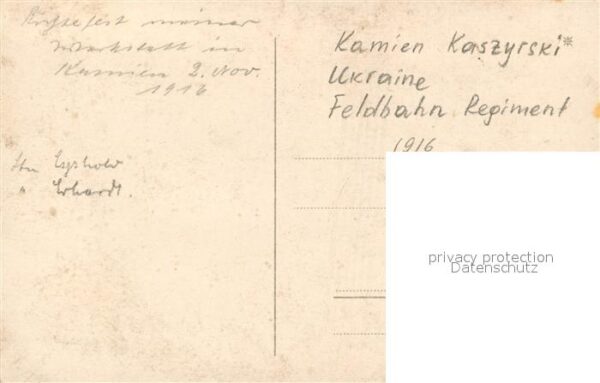 Richtefest meiner
Werkstatt in
Kamien 2. Nov.
1916
Kamien Kaszyrski*
Ukraine
Feldbahn Regiment
1916
" Erhardt.
privacy protection
Datenschutz